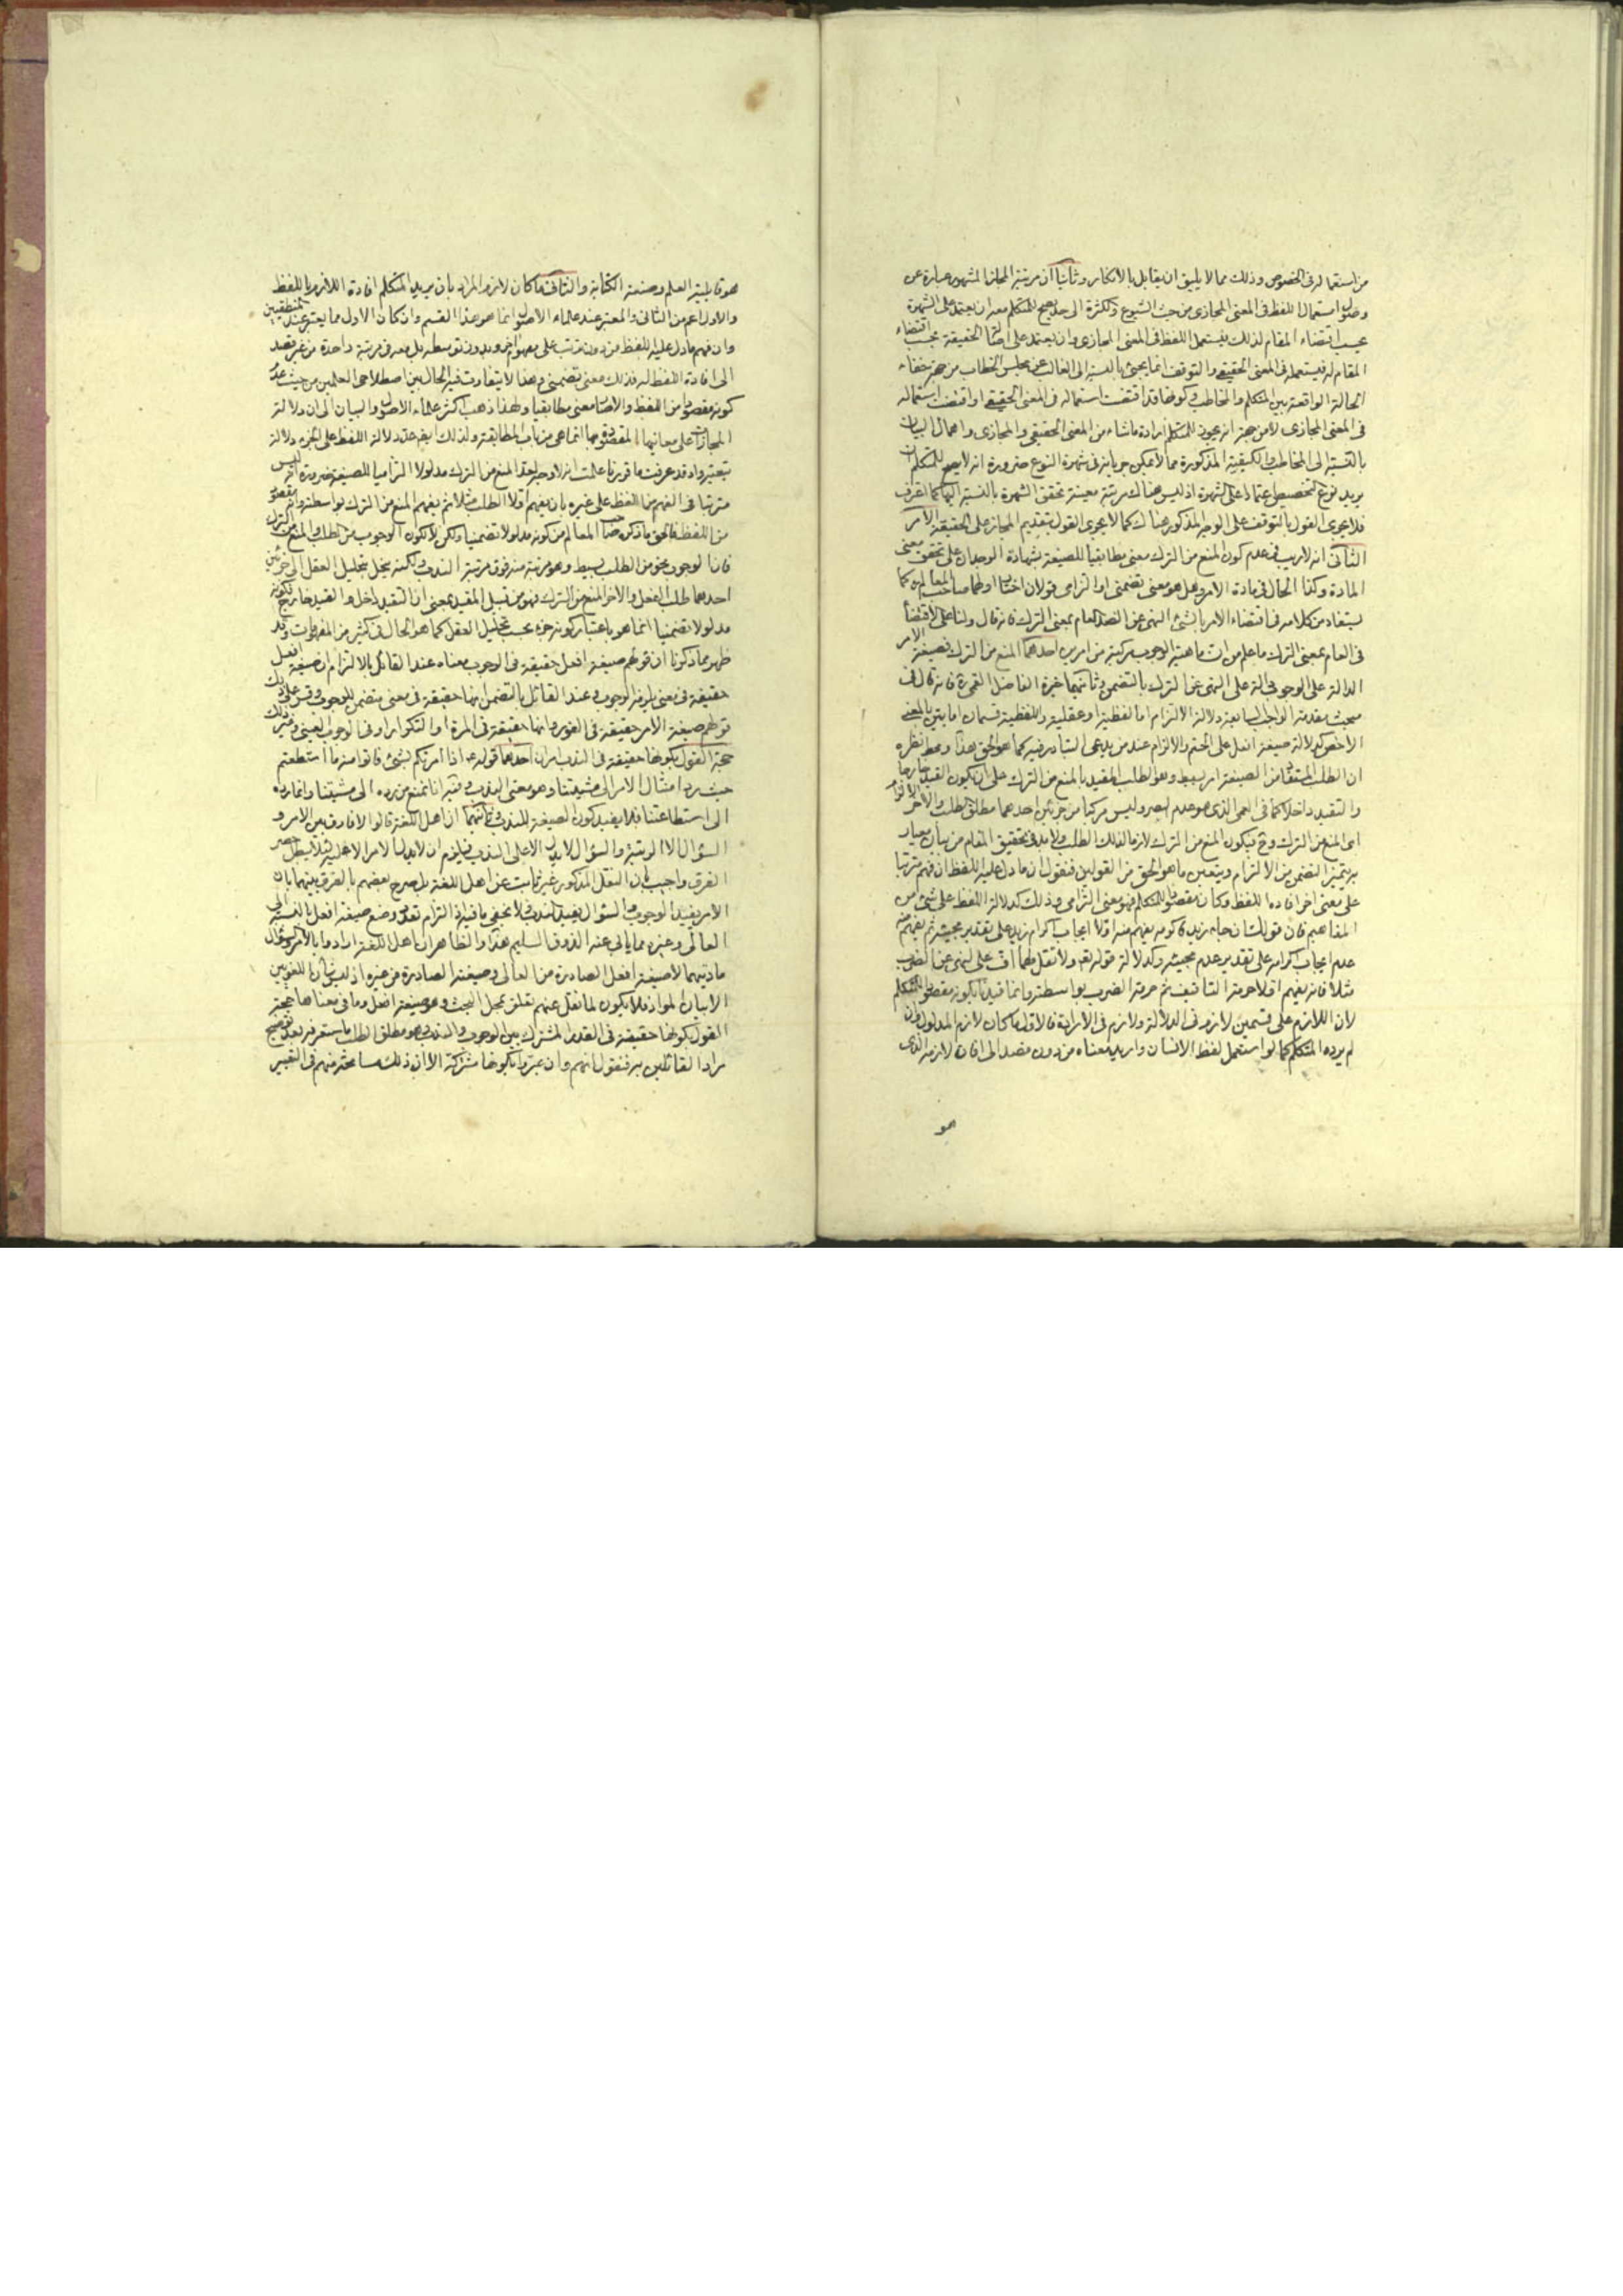 من استعماله فى الخصوص وذلك مما لا يليق ان يقابل بالانكار وثانيا ان مرتبة المجاز المشهور عبارة عن
وصول استعمال اللفظ فى المعنى المجازى من حيث الشيوع والكثرة الى حد يصح للمتكلم معه ان يعتمد على الشهرة
بحسب اقتضاء المقام لذلك فيستعمل اللفظ فى المعنى المجازى وان يعتمد على اصالة الحقيقة بحسب اقتضاء
المقام له فيستعمله فى المعنى الحقيقى والتوقف انما يجئ بالنسبة الى الغائب عن مجلس الخطاب من جهة خفاء
الحالة الواقعة بين المتكلم والمخاطب وكونها قد اقتضت استعماله فى المعنى الحقيقى او اقتضت استعماله
فى المعنى المجازى لا من جهة انه يجوز للمتكلم ارادة ما شاء من المعنى الحقيقى والمجازى واهمال البيان
بالنسبة الى المخاطب والكيفية المذكورة مما لا يمكن جريانه فى شهرة النوع ضرورة انه لا يصح للمتكلم ان
يريد نوع التخصيص اعتمادا على الشهرة اذ ليس هناك مرتبة معينة تحقق الشهرة بالنسبة اليها كما اعرف
فلا يجرى القول بالتوقف على الوجه المذكور هناك كما لا يجرى القول بتقديم المجاز على الحقيقة الامر
الثانى انه لا ريب فى عدم كون المنع من الترك معنى مطابقيا للصيغة بشهادة الوجدان على تحقق معنى
المادة وكذا الحال فى مادة الامر وهل هو معنى تضمنى او التزامى قولان اختار اولهما صاحب المعالم ره كما
يستفاد من كلامه فى اقتضاء الامر بالشئ النهى عن الضد العام بمعنى الترك فانه قال ولنا على الاقتضاء
فى العام بمعنى الترك ما علم من ان ماهية الوجوب مركبة من امرين احدهما المنع من الترك فصيغة الامر
الدالة على الوجوب دالة على النهى عن الترك بالتضمن وثانيهما خيرة الفاضل القمى ره فانه قال فى
مبحث مقدمة الواجب السابعة دلالة الالتزام اما لفظية او عقلية واللفظية قسمان اما بين بالمعنى
الاخص كدلالة صيغة افعل على الحتم والالزام عند من يدعى التبادر فيه كما هو الحق هذا ومحط نظره
ان الطلب المستفاد من الصيغة امر بسيط وهو الطلب المقيد بالمنع من الترك على ان يكون القيد خارجا
والتقيد داخلا كما فى العمى الذى هو عدم البصر وليس مركبا من جزئين احدهما مطلق الطلب والاخر الالزام
اى المنع من الترك وح فيكون المنع من الترك لازما لذلك الطلب ولا بد فى تحقيق المقام من بيان معيار
به يتميز التضمن من الالتزام ويتعين ما هو الحق من القولين فنقول ان ما دل عليه اللفظ ان فهم مترتبا
على معنى اخر افاده اللفظ وكان مقصودا للمتكلم فهو معنى التزامى وذلك كدلالة اللفظ على شئ من
المفاهيم فان قولك ان جاءك زيد فاكرمه يفهم منه اولا ايجاب اكرام زيد على تقدير مجيئه ثم يفهم منه
عدم ايجاب اكرامه على تقدير عدم مجيئه وكدلالة قوله تعالى ولا تقل لهما اف على النهى عن الضرب
مثلا فانه يفهم اولا حرمة التافيف ثم حرمة الضرب بواسطته وانما قيدنا بكونه مقصودا للمتكلم
لان اللازم على قسمين لازم فى الدلالة ولازم فى الارادة فالاول ما كان لازم المدلول وان
لم يرده المتكلم كما لو استعمل لفظ الانسان واريد معناه من دون قصد الى افادة لازمه الذى
هو
هو قابلية العلم وصنعة الكتابة والثانى ما كان لازم المراد بان يريد المتكلم افادة اللازم باللفظ
والاول اعم من الثانى والمعتبر عند علماء الاصول انما هو هذا القسم وان كان الاول مما يعتبر عند المنطقيين
وان فهم ما دل عليه اللفظ من دون ترتب على مفهوم اخر وبدون توسطه بل معه فى مرتبة واحدة من غير قصد
الى افادة اللفظ له فذلك معنى تضمنى وهذا لا يتفاوت فيه الحال بين اصطلاحى العلمين من حيث عدم
كونه مقصودا من اللفظ والا صار معنى مطابقيا ولهذا ذهب اكثر علماء الاصول والبيان الى ان دلالة
المجازات على معانيها المقصودة بها انما هى من باب المطابقة ولذلك
بتعيته واذ قد عرفت ما قررنا علمت انه لا وجه لعد المنع من الترك مدلولا التزاميا للصيغة ضرورة انه ليس
مترتبا فى الفهم من اللفظ على غيره بان يفهم اولا الطلب مثلا ثم يفهم المنع من الترك بواسطته وانه مقصود
من اللفظ فالحق ما ذكره صاحب المعالم من كونه مدلولا تضمنيا ولكن لا لكون الوجوب مركبا من الطلب والمنع من الترك
فان الوجوب نحو من الطلب بسيط وهو مرتبة منه فوق مرتبة الندب ولكنه ينحل بتحليل العقل الى جزئين
احدهما طلب الفعل والاخر المنع من الترك فهو من قبيل المقيد بمعنى ان التقيد داخل والقيد خارج فكونه
مدلولا تضمنيا انما هو باعتبار كونه جزء بحسب تحليل العقل كما هو الحال فى كثير من المفردات وقد
ظهر مما ذكرنا ان قولهم صيغة افعل حقيقة فى الوجوب معناه عند القائل بالالتزام ان صيغة افعل
حقيقة فى معنى يلزمه الوجوب وعند القائل بالتضمن انها حقيقة فى معنى متضمن للوجوب وقس على ذلك
قولهم صيغة الامر حقيقة فى الفور وانها حقيقة فى المرة او التكرار او فى الوجوب العينى وغير ذلك
حجة القول بكونها حقيقة فى الندب امران احدهما قوله ع اذا امرتكم بشئ فاتوا منه ما استطعتم
حيث رد امتثال الامر الى مشيتنا وهو معنى الندب وفيه انا نمنع من رده الى مشيتنا وانما رده
الى استطاعتنا فلا يفيد كون الصيغة للندب وثانيهما ان اهل اللغة قالوا لا فارق بين الامر و
السؤال الا الرتبة والسؤال لا يدل الا على الندب فيلزم ان لا يدل الامر الا عليه لئلا يبطل حصر
الفرق واجيب بان النقل المذكور غير ثابت عن اهل اللغة بل صرح بعضهم بالفرق بينهما بان
الامر يفيد الوجوب والسؤال يفيد الندب ولا يخفى ما فيه اذ التزام تعدد وضع صيغة افعل بالنسبة الى
العالى وغيره مما يابى عنه الذوق السليم هذا والظاهر ان اهل اللغة ارادوا بالامر والسؤال
مادتيهما لا صيغة افعل الصادرة من العالى وصيغته الصادرة من غيره اذ ليس شان اللغويين
الا بيان المواد فلا يكون لما نقل عنهم تعلق بمحل البحث وهو صيغة افعل وما فى معناها حجة
القول بكونها حقيقة فى القدر المشترك بين الوجوب والندب وهو مطلق الطلب ما ستعرفه بعد توضيح
مراد القائلين به فنقول انهم وان عبروا بكونها مشتركة الا ان ذلك مسامحة منهم فى التعبير